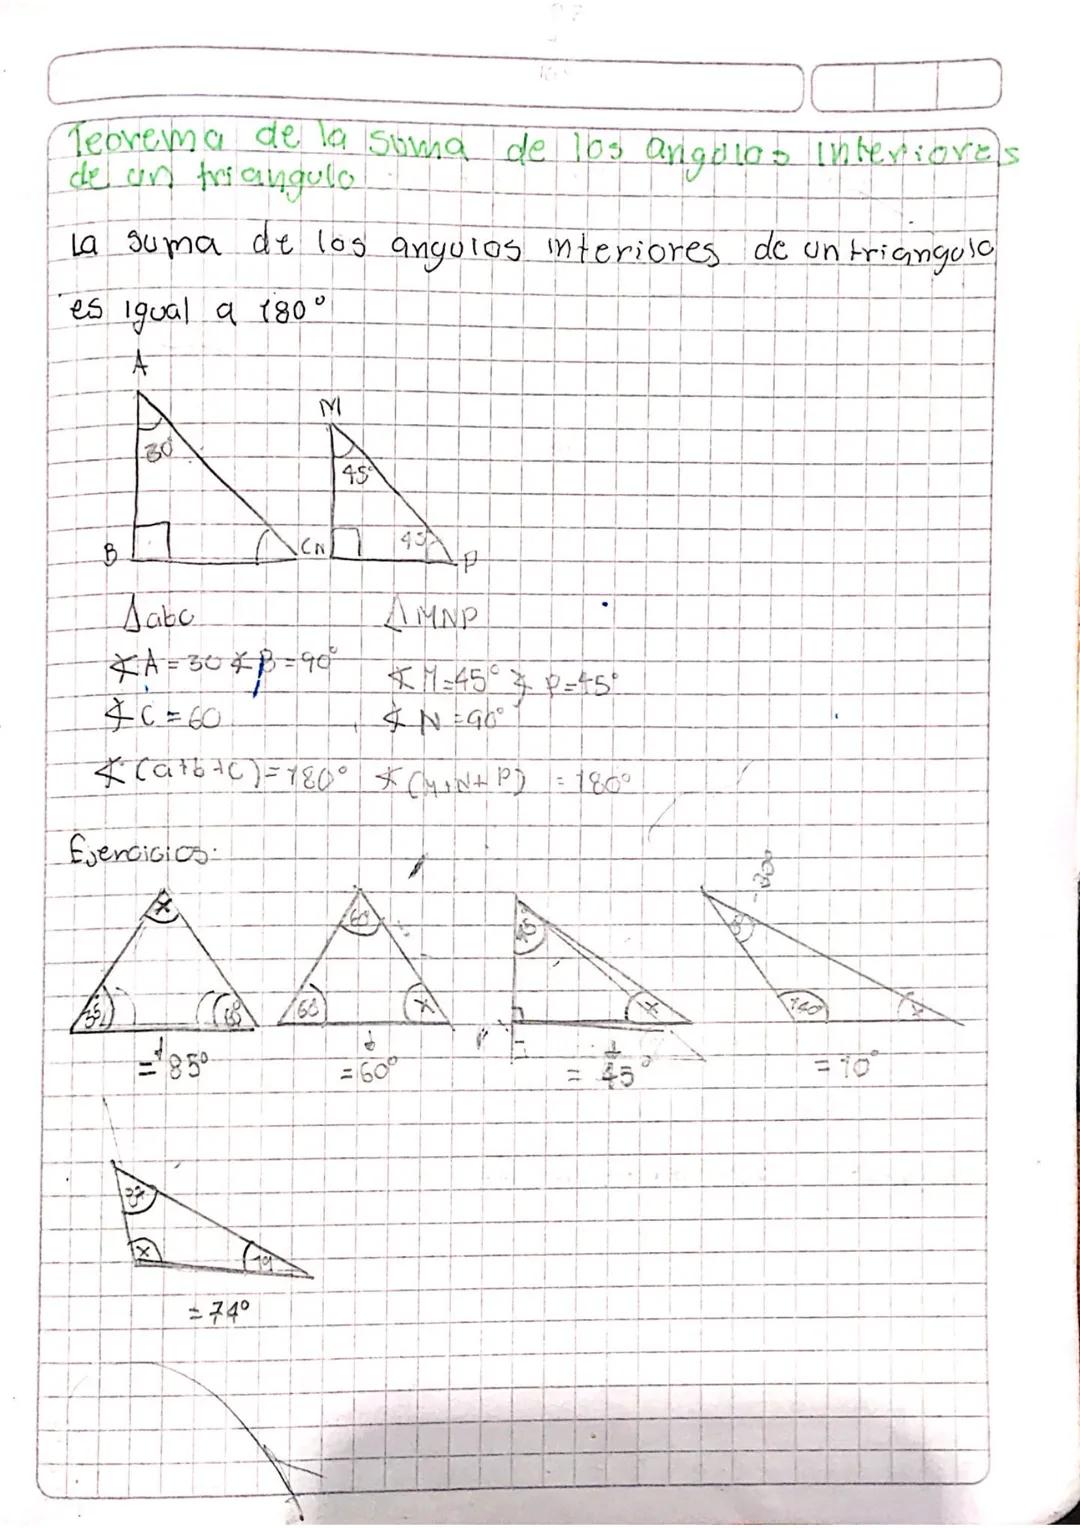 Teorema de la suma de los angulos interiores
de un triangulo
La suma de los angulos interiores de un triangulo
es igual a 180°
A
M
30°
45°
B
C N
45
P
Δabc ΔMNP
∡A=30 ∡B=90°
∡M=45° ∡P=45°
∡C=60 ∡N=90°
∡(a+b+c)=180° ∡(M+N+P) =180°
Ejercicios:
30°
x 60
60 x x 140° x
=85° =60° = 45° =10°
x
=74°